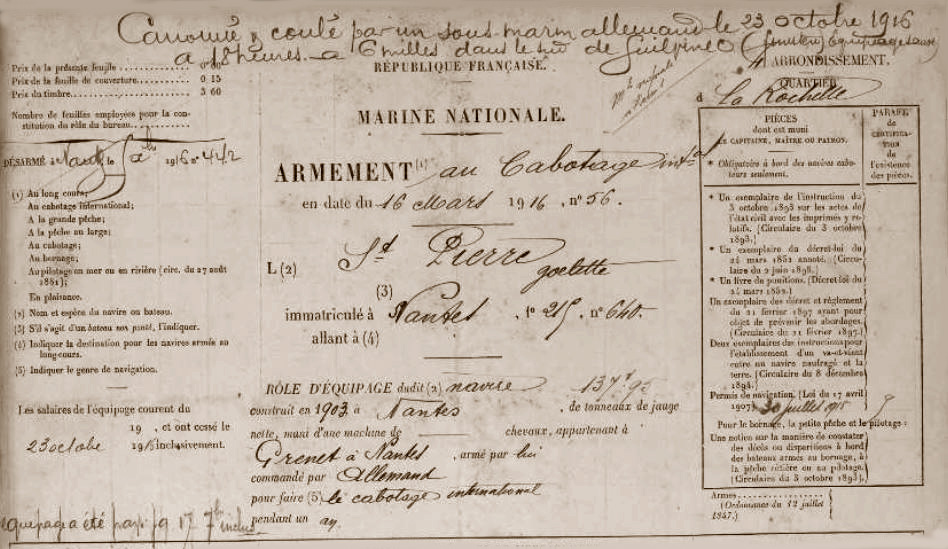 Canonné & coulé par un sous-marin allemand le 23 octobre 1916
à 18 heures - à 6 milles dans le sud de Guilvinec (Équipage sauvé)
Prix de la présente feuille
Prix de la feuille de couverture 0 15
Prix du timbre 3 60
Nombre de feuilles employées pour la constitution
du rôle du bureau
DÉSARMÉ à Nantes le 1916 n° 442
(1) Au long cours;
Au cabotage international;
A la grande pêche;
A la pêche au large;
Au cabotage;
Au bornage;
Au pilotage en mer ou en rivière (circ. du 27 août
1851);
En plaisance.
(2) Nom et espèce du navire ou bateau.
(3) S'il s'agit d'un bateau non ponté, l'indiquer.
(4) Indiquer la destination pour les navires armés au
long-cours.
(5) Indiquer le genre de navigation.
Les salaires de l'équipage courent du
19 , et ont cessé le
23 octobre 1916 inclusivement.
équipage a été payé
RÉPUBLIQUE FRANÇAISE.
MARINE NATIONALE.
ARMEMENT (1) au Cabotage intal
en date du 16 Mars 1916, n° 56.
L (2) St Pierre
goelette
(3)
immatriculé à Nantes, f° 215, n° 640
allant à (4)
RÔLE D'ÉQUIPAGE dudit (2) navire 137 t 95
construit en 1903 à Nantes, de tonneaux de jauge
nette, muni d'une machine de chevaux, appartenant à
Grenet à Nantes, armé par lui
commandé par Allemand
pour faire (5) le cabotage international
pendant un an.
ARRONDISSEMENT.
QUARTIER
d La Rochelle
PIÈCES
dont est muni
LE CAPITAINE, MAÎTRE OU PATRON.
* Obligatoire à bord des navires caboteurs
seulement.
PARAFE
de
CERTIFICATION
de
l'existence
des pièces.
* Un exemplaire de l'instruction du
3 octobre 1893 sur les actes de
l'état civil avec les imprimés y relatifs.
(Circulaire du 3 octobre
1893.)
* Un exemplaire du décret-loi du
24 mars 1852 annoté. (Circulaire
du 2 juin 1898.)
* Un livre de punitions. (Décret-loi du
24 mars 1852.)
Un exemplaire des décret et règlement
du 21 février 1897 ayant pour
objet de prévenir les abordages.
(Circulaire du 21 février 1897.)
Deux exemplaires des instructions pour
l'établissement d'un va-et-vient
entre un navire naufragé et la
terre. (Circulaire du 8 décembre
1894.)
Permis de navigation. (Loi du 17 avril
1907) 30 juillet 1915
Pour le bornage, la petite pêche et le pilotage:
Une notice sur la manière de constater
des décès ou disparitions à bord
des bateaux armés au bornage, à
la pêche côtière ou au pilotage.
(Circulaire du 3 octobre 1893.)
Armes
(Ordonnance du 12 juillet
1847.)